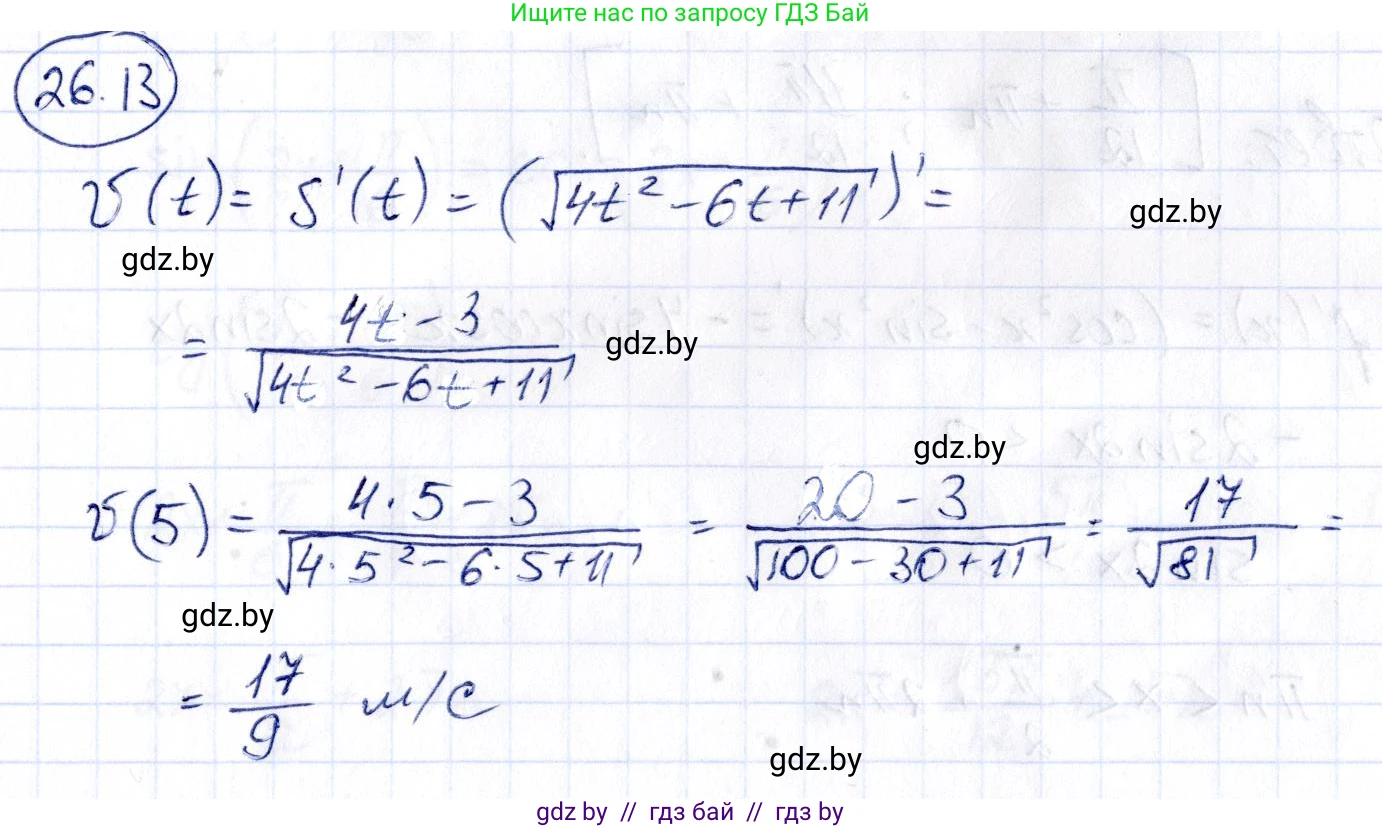 Ищите нас по запросу ГДЗ Бай
26.13
v(t) = s'(t) = (√(4t² - 6t + 11))' =
gdz.by
gdz.by
= (4t - 3) / √(4t² - 6t + 11)
gdz.by
gdz.by
v(5) = (4·5 - 3) / √(4·5² - 6·5 + 11) = (20 - 3) / √(100 - 30 + 11) = 17 / √81 =
gdz.by
= 17/9 м/с
gdz.by
gdz.by // гдз бай // гдз by